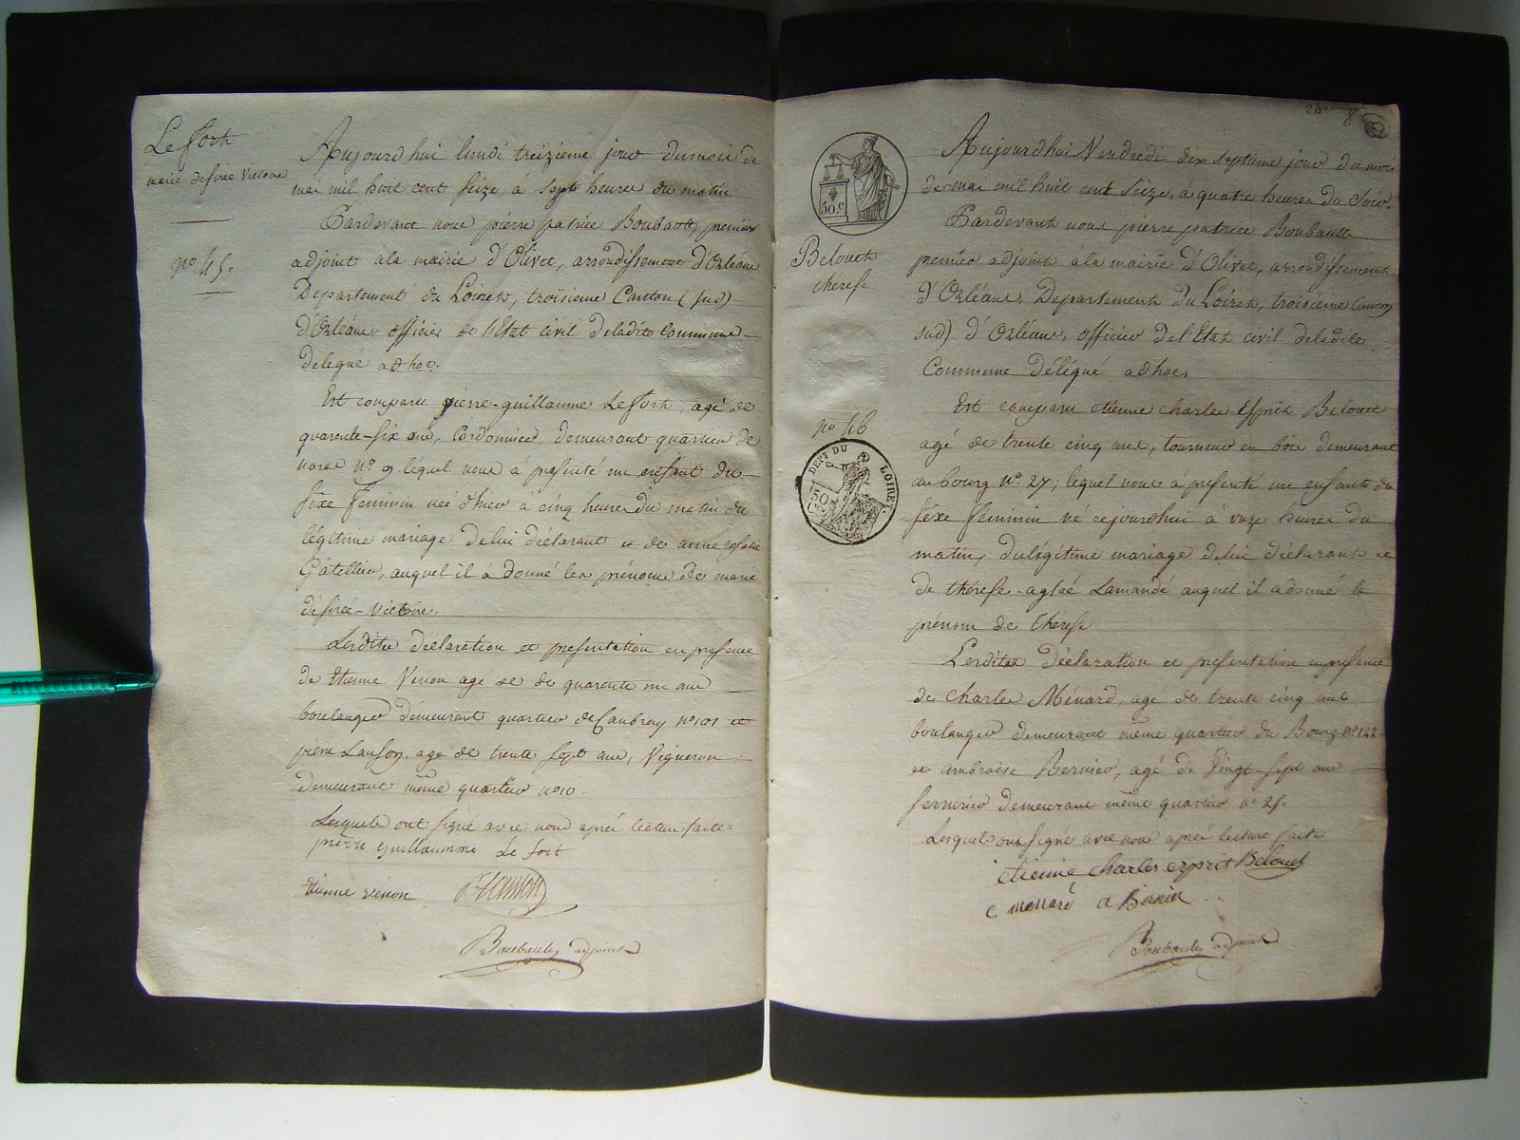 Le fort
marie desirée Victoire
nº 45.
Aujourd'hui lundi treizieme jour du mois de
mai mil huit cent seize à sept heures du matin
Pardevant nous pierre patrice Boubault, premier
adjoint à la mairie d'Olivet, arrondissement d'Orléans
Departement du Loiret, troisieme Canton (sud)
d'Orléans officier de l'Etat civil deladite Commune
delegué ad hoc.
Est comparu pierre-guillaume Le fort, agé de
quarente-six ans, Cordonnier demeurant quartier de
nº 9 léquel nous à présenté un enfant du
séxe féminin née d'hier à cinq heures du matin du
légitime mariage de lui déclarant et de anne rosalie
Gâtellier, auquel il à donné les prénoms de marie
désirée-victoire.
Lesdites déclaration et présentation en présence
de Etienne Venon agé de de quarente un ans
boulanger démeurant quartier de Caubray nº 101 et
pierre Lanson agé de trente sept ans, Vigneron
demeurant même quartier nº 10
Lesquels ont signé avec nous après lecture faite
pierre guillaumme Le fort
etienne venon P Lanson
Boubault adjoint
50 C
Belouet
therese
nº 46
DEPT DU LOIRET
50 C
Aujourd'hui Vendredi dix septieme jour du mois
de mai mil huit cent seize, à quatre heures du Soir.
Pardevant nous pierre patrice Boubault
premier adjoint à la mairie d'Olivet, arrondissement
d'Orléans, Departement du Loiret, troisieme Canton
sud) d'Orléans, officier de l'Etat civil deladite
Commune délégué ad hoc,
Est comparu etienne charles Esprit Belouet
agé de trente cinq ans, tourneur en bois demeurant
au bourg nº 27, lequel nous a présenté un enfant du
séxe féminin né cejourd'hui à onze heures du
matin, du légitime mariage de lui déclarant et
de thérese-aglaé Lamandé auquel il a donné le
prénom de thérese
Lesdites déclaration et présentation en présence
de charles Ménard, agé de trente cinq ans
boulanger demeurant même quartier du Bourg nº 142
et ambroise Bernier, agé de vingt-sept ans
serrurier demeurant même quartier nº 25.
Lesquels ont signé avec nous après lecture faite
etienne charles esprit Belouet
c menard a Bernier
Boubault adjoint